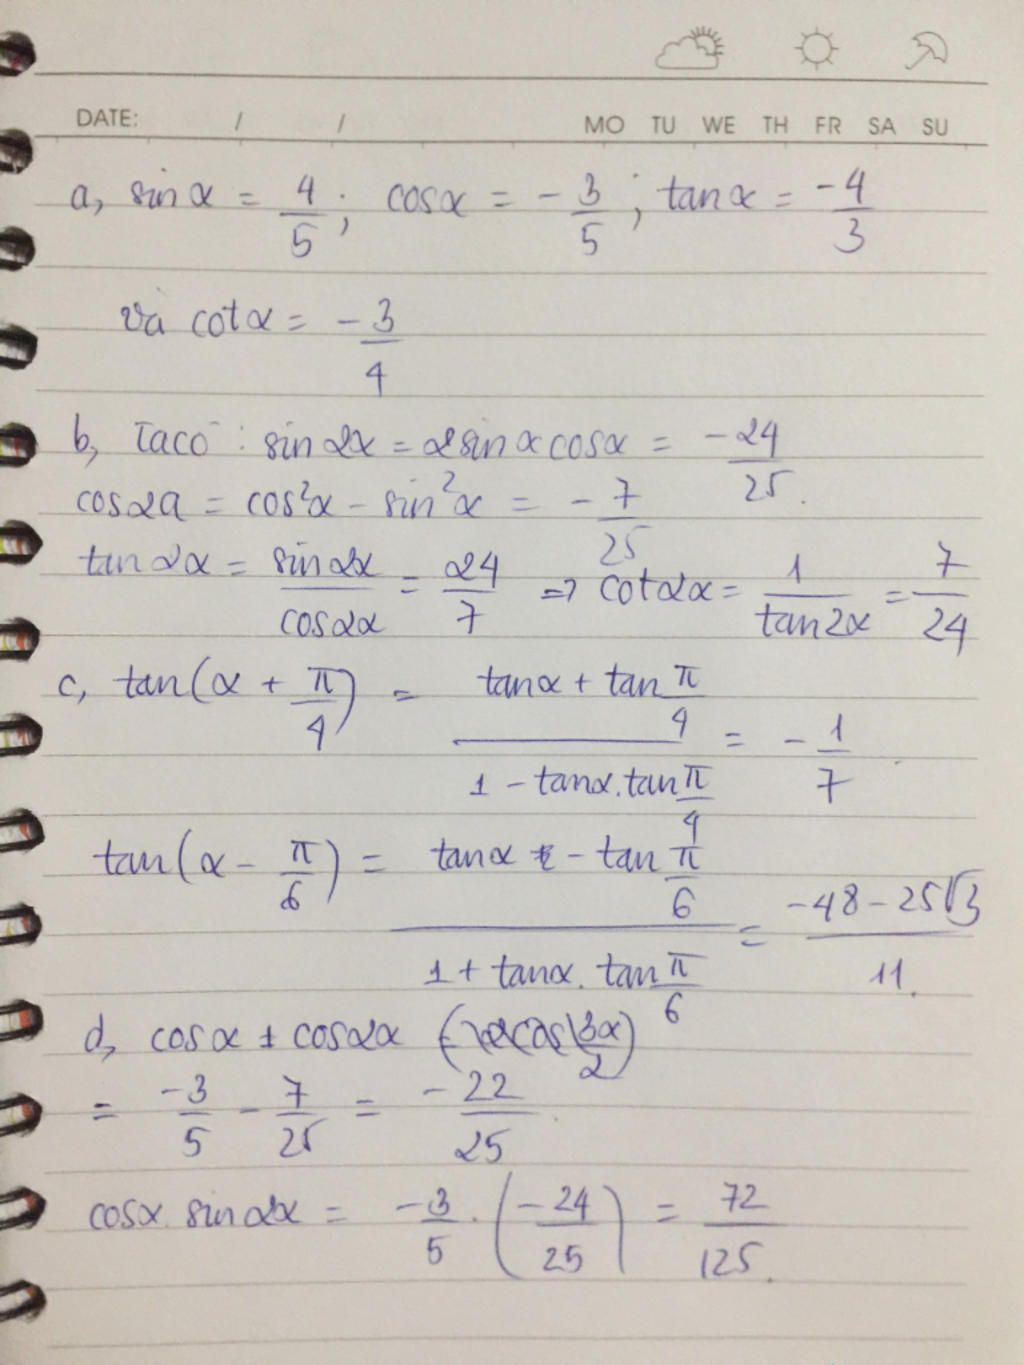 DATE: / /
MO TU WE TH FR SA SU
a, sinα = 4/5 ; cosα = -3/5 ; tanα = -4/3
và cotα = -3/4
b, Ta có : sin2α = 2sinαcosα = -24/25.
cos2α = cos²α - sin²α = -7/25
tan2α = sin2α/cos2α = 24/7 => cot2α = 1/tan2α = 7/24
c, tan(α + π/4) = (tanα + tan π/4)/(1 - tanα.tan π/4) = -1/7
tan(α - π/6) = (tanα - tan π/6)/(1 + tanα. tan π/6) = (-48 - 25√3)/11.
d, cosα + cos2α
= -3/5 - 7/25 = -22/25.
cosα. sin2α = -3/5 . (-24/25) = 72/125.